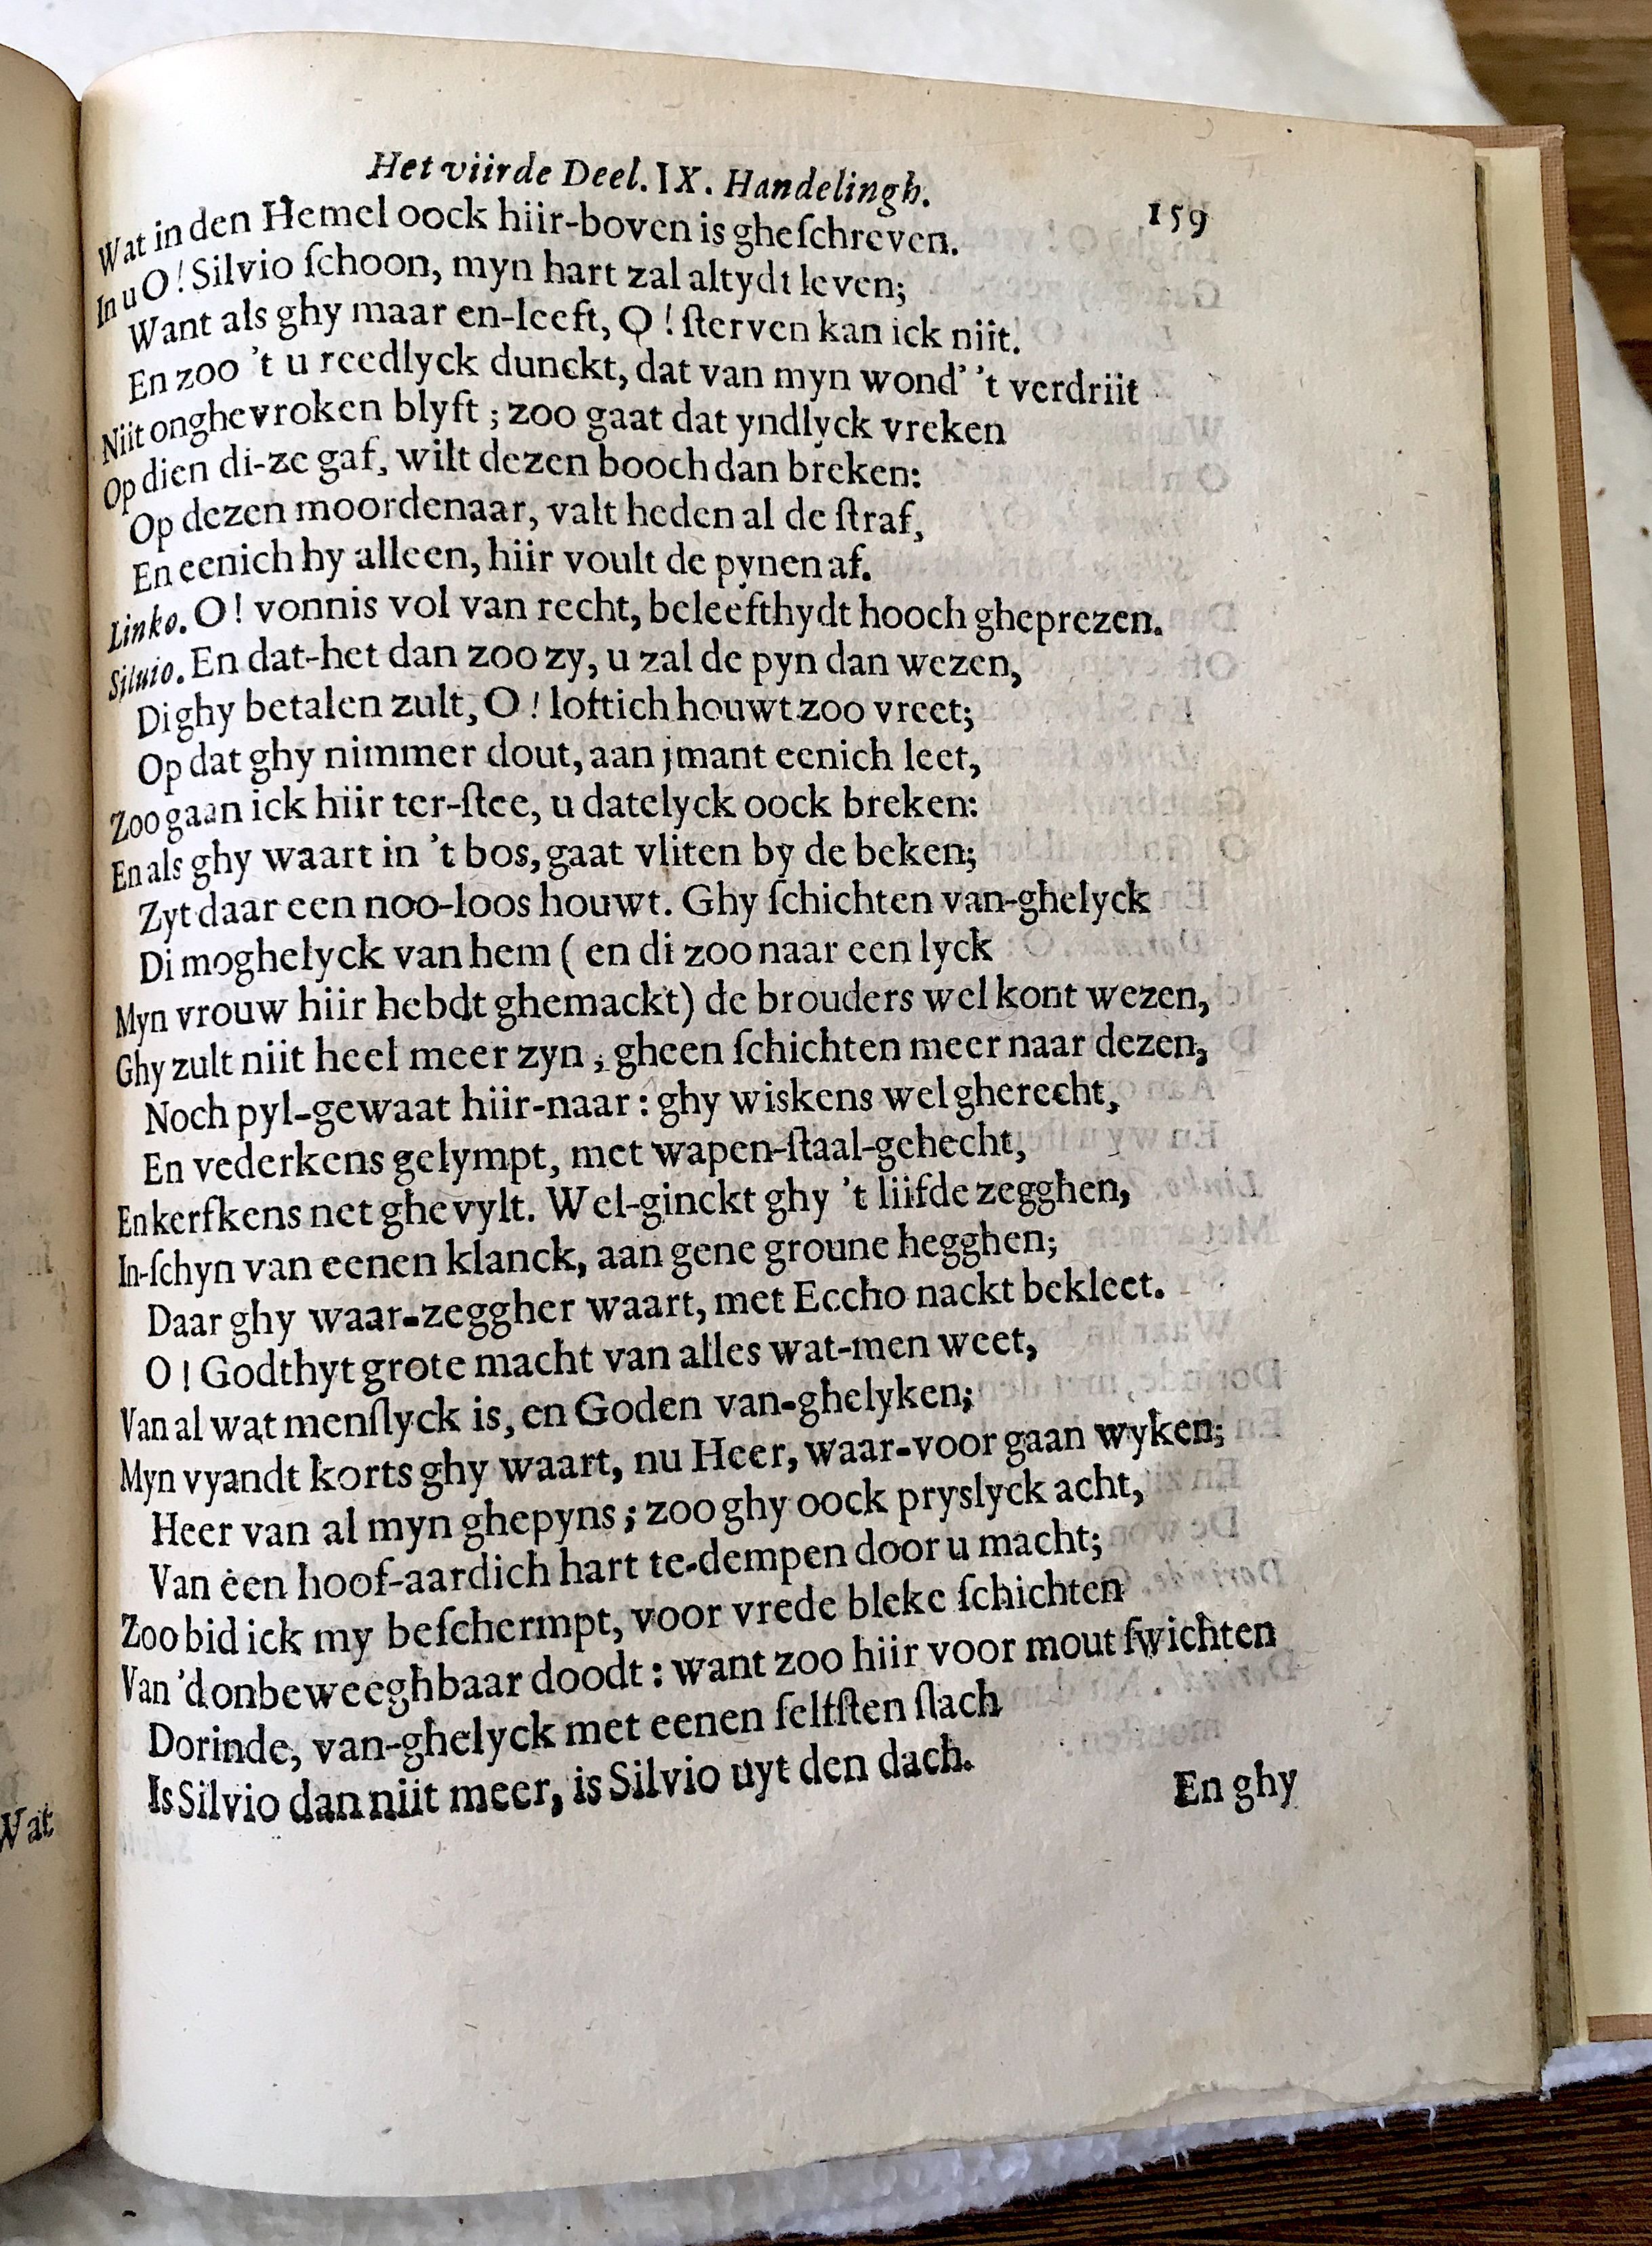 Het viirde Deel. IX. Handelingh. 159
Wat in den Hemel oock hiir-boven is gheſchreven.
In u O! Silvio ſchoon, myn hart zal altydt leven;
Want als ghy maar en-leeft, O! ſterven kan ick niit.
En zoo 't u reedlyck dunckt, dat van myn wond' 't verdriit
Niit onghevroken blyft; zoo gaat dat yndlyck vreken
Op dien di-ze gaf, wilt dezen booch dan breken:
Op dezen moordenaar, valt heden al de ſtraf,
En eenich hy alleen, hiir voult de pynen af.
Linko. O! vonnis vol van recht, beleefthydt hooch gheprezen.
Silvio. En dat-het dan zoo zy, u zal de pyn dan wezen,
Di ghy betalen zult, O! loftich houwt zoo vreet;
Op dat ghy nimmer dout, aan jmant eenich leet,
Zoo gaan ick hiir ter-ſtee, u datelyck oock breken:
En als ghy waart in 't bos, gaat vliten by de beken;
Zyt daar een noo-loos houwt. Ghy ſchichten van-ghelyck
Di moghelyck van hem (en di zoo naar een lyck
Myn vrouw hiir hebdt ghemackt) de brouders wel kont wezen,
Ghy zult niit heel meer zyn, gheen ſchichten meer naar dezen,
Noch pyl-gewaat hiir-naar: ghy wiskens wel gherecht,
En vederkens gelympt, met wapen-ſtaal-gehecht,
En kerfkens net ghevylt. Wel-ginckt ghy 't liifde zegghen,
In-ſchyn van eenen klanck, aan gene groune hegghen;
Daar ghy waar-zeggher waart, met Eccho nackt bekleet.
O! Godthyt grote macht van alles wat-men weet,
Van al wat menſlyck is, en Goden van-ghelyken;
Myn vyandt korts ghy waart, nu Heer, waar-voor gaan wyken;
Heer van al myn ghepyns; zoo ghy oock pryslyck acht,
Van een hoof-aardich hart te-dempen door u macht;
Zoo bid ick my beſchermpt, voor vrede bleke ſchichten
Van 'donbeweeghbaar doodt: want zoo hiir voor mout ſwichten
Dorinde, van-ghelyck met eenen ſelfſten ſlach
Is Silvio dan niit meer, is Silvio uyt den dach.
En ghy
Wat